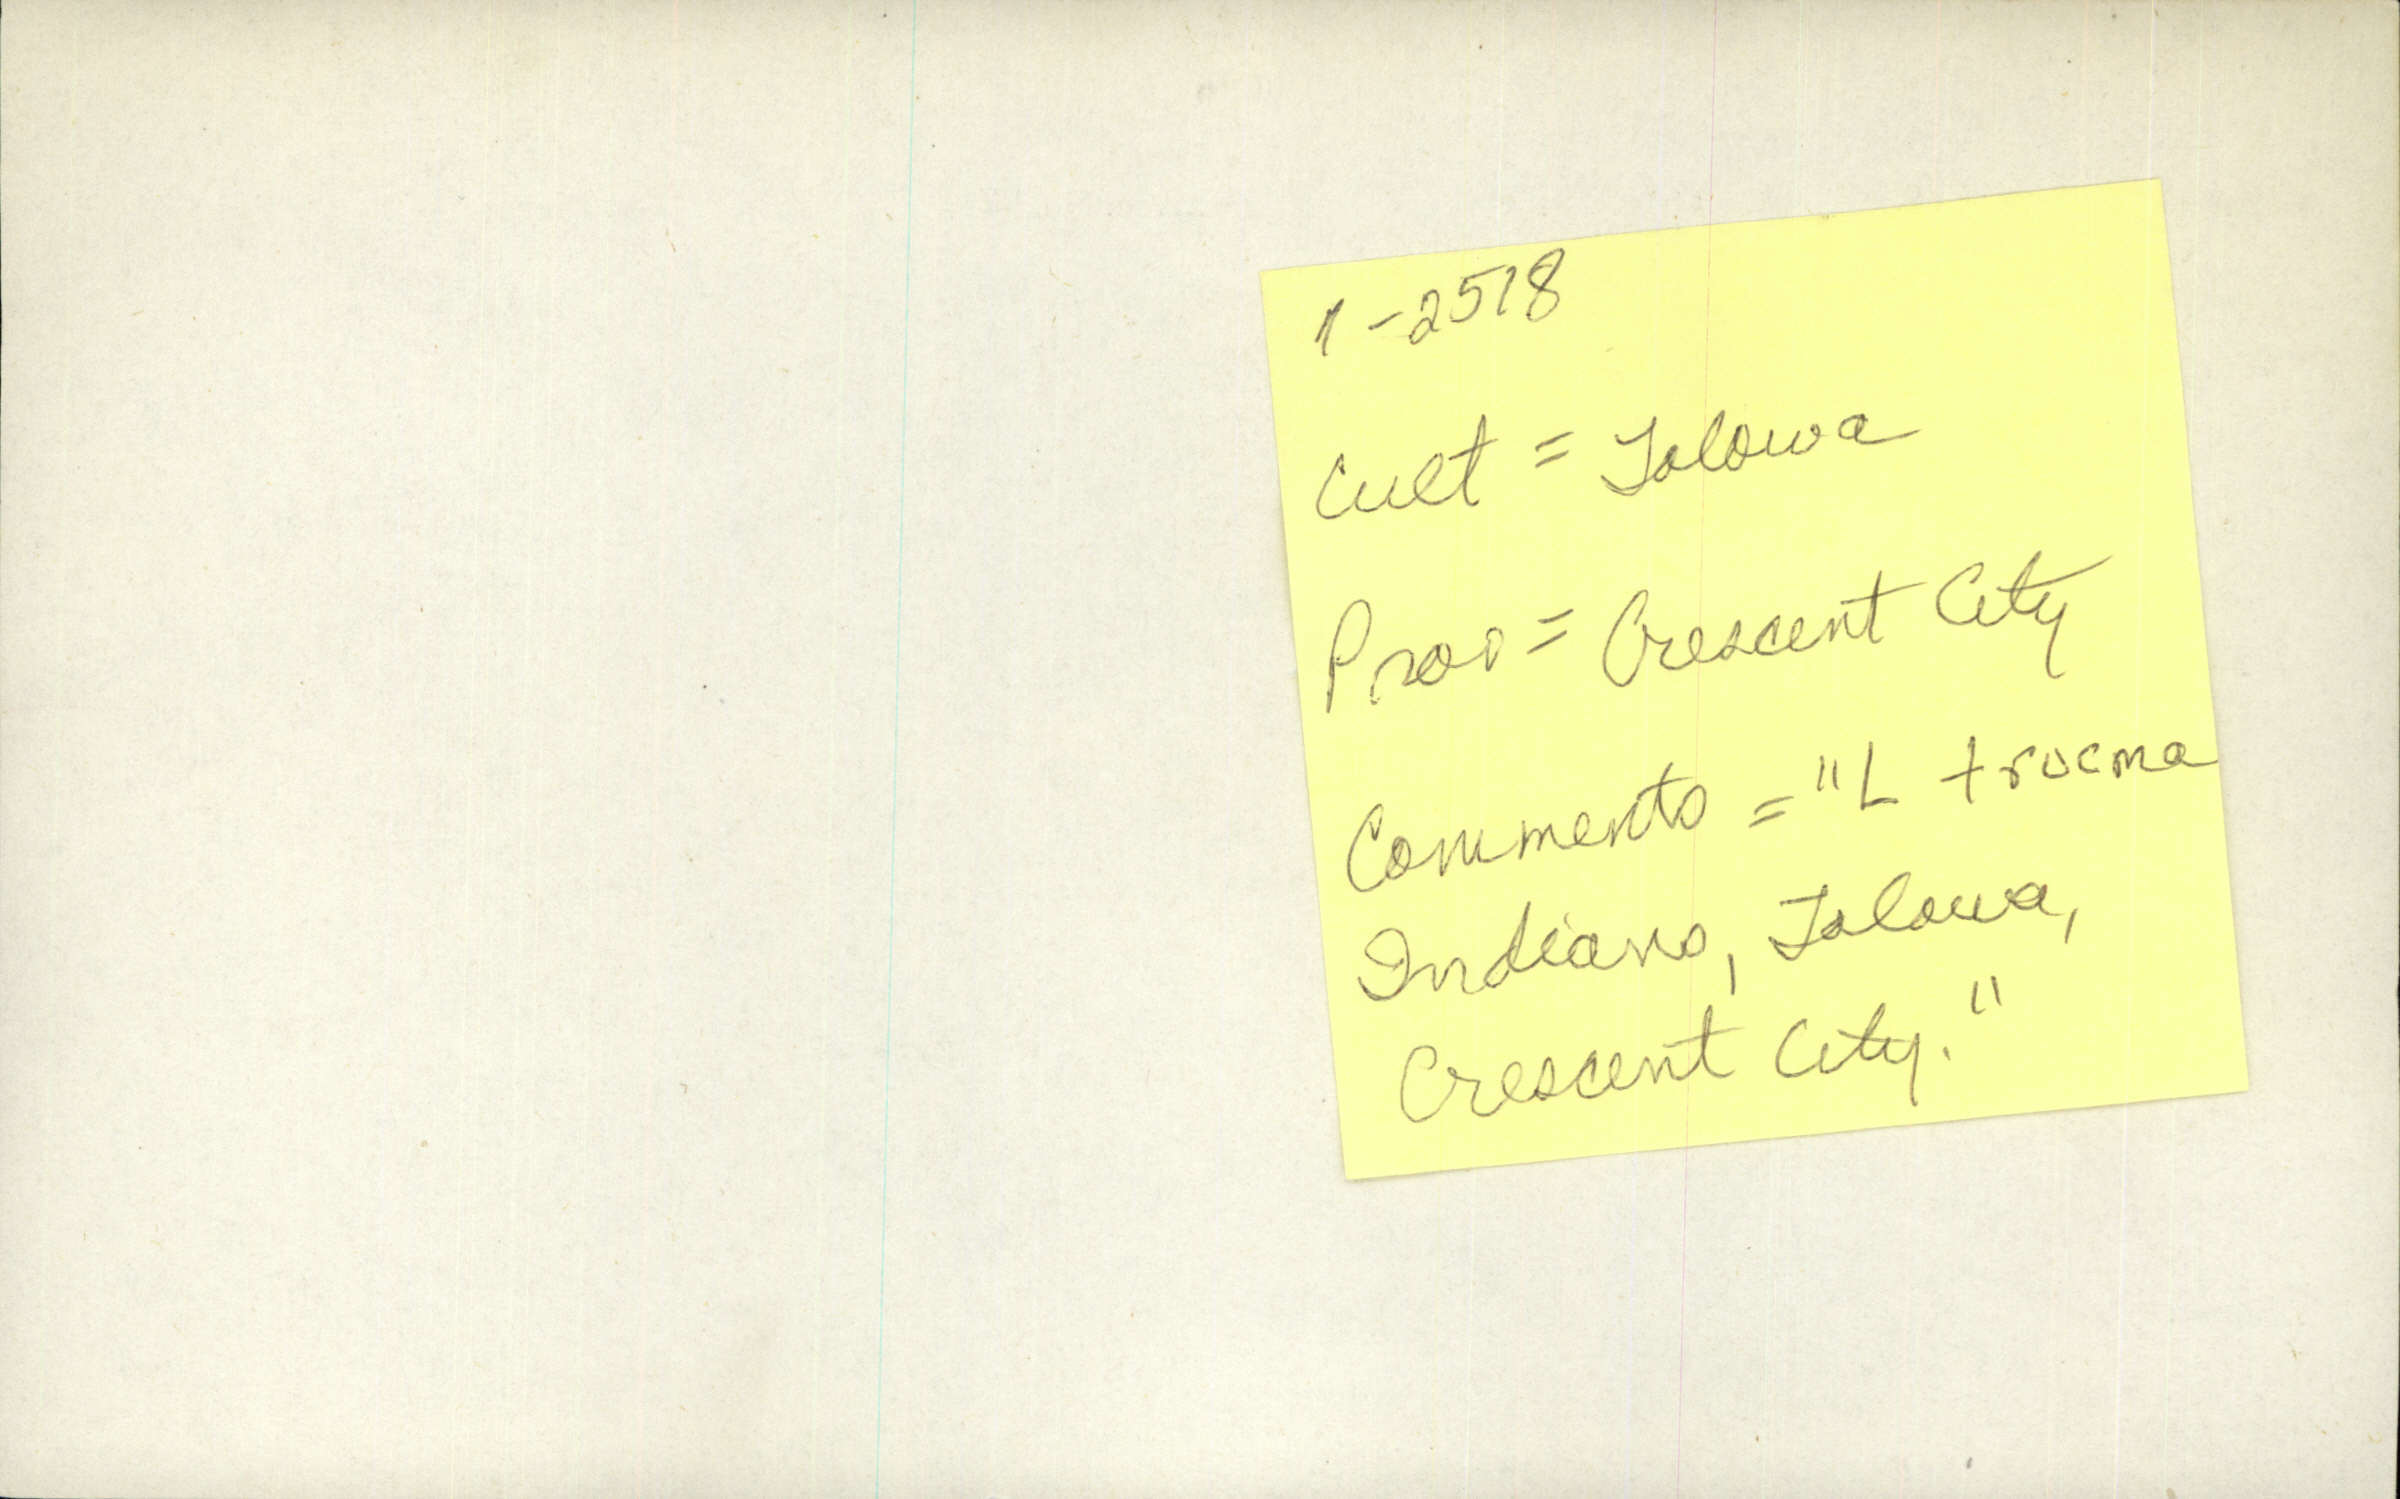 1-2518
Cult = Tolowa
Prov = Crescent City
Comments = "L trucma
Indians, Tolowa,
Crescent City."